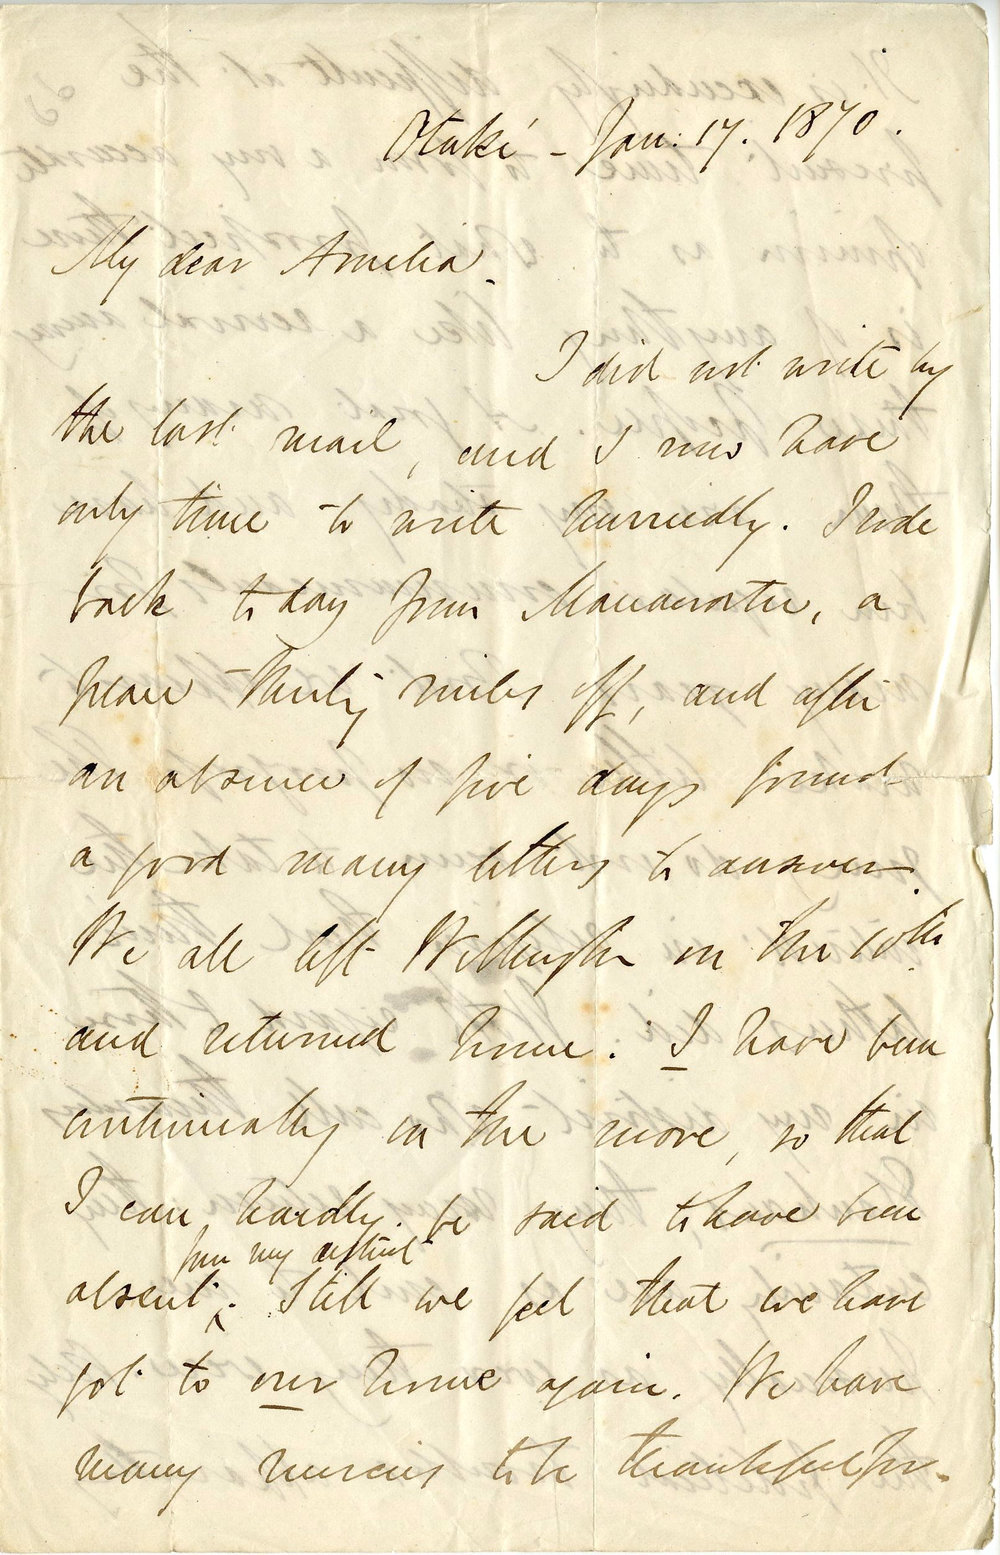 Otaki - Jan: 17. 1870.
My dear Amelia -
I did not write by
the last mail, and I now have
only time to write hurriedly. I rode
back today from Manawatu, a
place thirty miles off, and after
an absence of five days found
a good many letters to answer.
We all left Wellington on the 10th
and returned home. I have been
continually on the move, so that
I can hardly be said to have been
from my district
absent. Still we feel that we have
got to our home again. We have
many mercies to be thankful for.